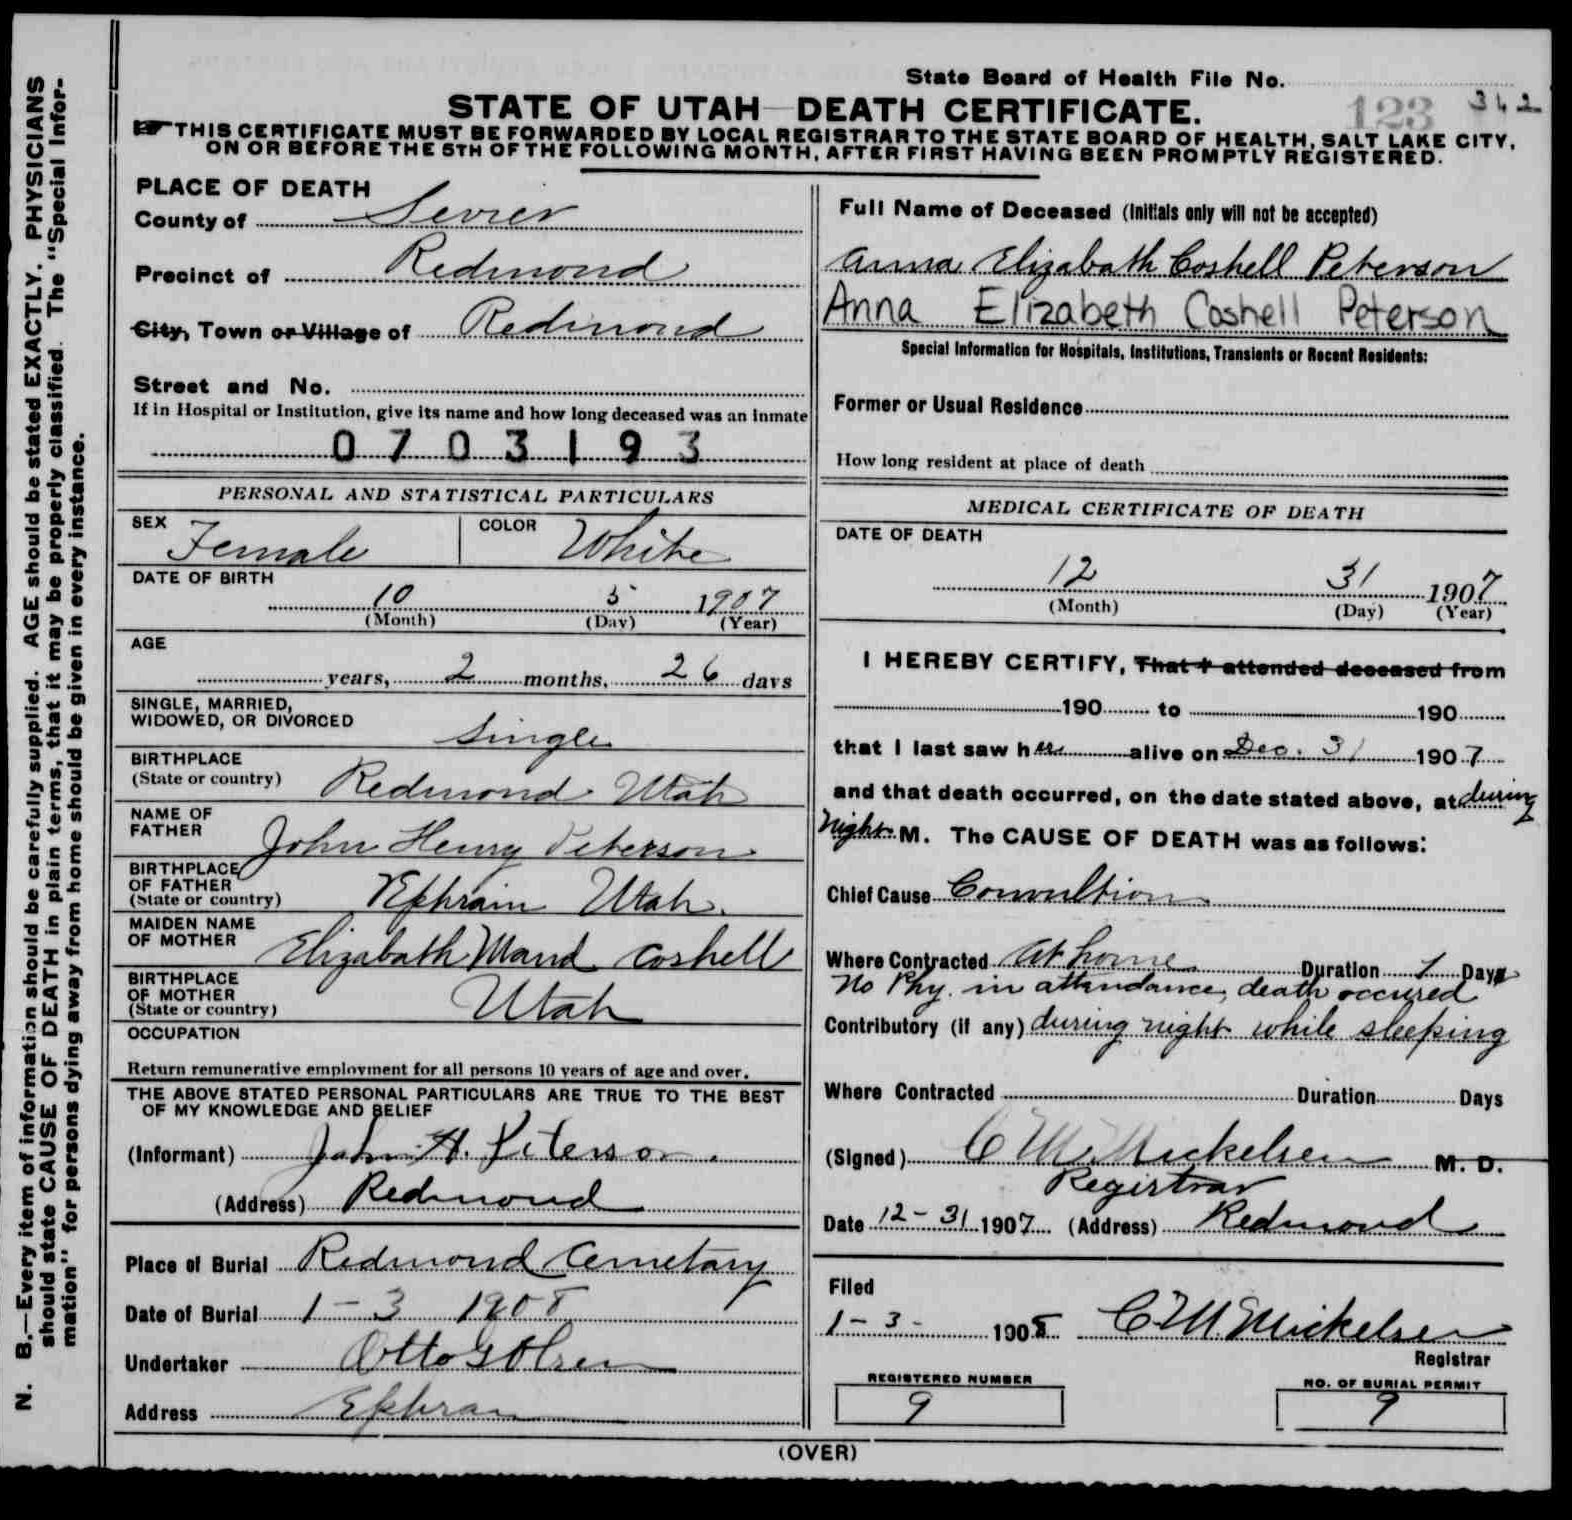 State Board of Health File No.
123 342
STATE OF UTAH—DEATH CERTIFICATE.
☞ THIS CERTIFICATE MUST BE FORWARDED BY LOCAL REGISTRAR TO THE STATE BOARD OF HEALTH, SALT LAKE CITY,
ON OR BEFORE THE 5TH OF THE FOLLOWING MONTH, AFTER FIRST HAVING BEEN PROMPTLY REGISTERED.
PLACE OF DEATH
County of Sevier
Precinct of Redmond
City, Town or Village of Redmond
Street and No.
If in Hospital or Institution, give its name and how long deceased was an inmate
0703193
PERSONAL AND STATISTICAL PARTICULARS
SEX Female COLOR White
DATE OF BIRTH
10 5 1907
(Month) (Day) (Year)
AGE
years, 2 months, 26 days
SINGLE, MARRIED,
WIDOWED, OR DIVORCED Single
BIRTHPLACE
(State or country) Redmond Utah
NAME OF
FATHER John Henry Peterson
BIRTHPLACE
OF FATHER
(State or country) Ephraim Utah.
MAIDEN NAME
OF MOTHER Elizabath Maud Coshell
BIRTHPLACE
OF MOTHER
(State or country) Utah
OCCUPATION
Return remunerative employment for all persons 10 years of age and over.
THE ABOVE STATED PERSONAL PARTICULARS ARE TRUE TO THE BEST
OF MY KNOWLEDGE AND BELIEF
(Informant) John H. Peterson.
(Address) Redmond
Place of Burial Redmond Cemetary
Date of Burial 1-3 1908
Undertaker Otto G Olsen
Address Ephraim
Full Name of Deceased (Initials only will not be accepted)
Anna Elizabath Coshell Peterson
Anna Elizabeth Coshell Peterson
Special Information for Hospitals, Institutions, Transients or Recent Residents:
Former or Usual Residence
How long resident at place of death
MEDICAL CERTIFICATE OF DEATH
DATE OF DEATH
12 31 1907
(Month) (Day) (Year)
I HEREBY CERTIFY, That I attended deceased from
190 to 190
that I last saw her alive on Dec. 31 1907
and that death occurred, on the date stated above, at during
night M. The CAUSE OF DEATH was as follows:
Chief Cause Convultion
Where Contracted At home Duration 1 Days
No Phy. in attendance, death occured
Contributory (if any) during night while sleeping
Where Contracted Duration Days
(Signed) C M Mickelsen M. D.
Registrar
Date 12-31 1907 (Address) Redmond
Filed
1-3- 1908 C M Mickelsen
Registrar
REGISTERED NUMBER
9
NO. OF BURIAL PERMIT
9
(OVER)
N. B.—Every item of information should be carefully supplied. AGE should be stated EXACTLY. PHYSICIANS
should state CAUSE OF DEATH in plain terms, that it may be properly classified. The "Special Infor-
mation" for persons dying away from home should be given in every instance.